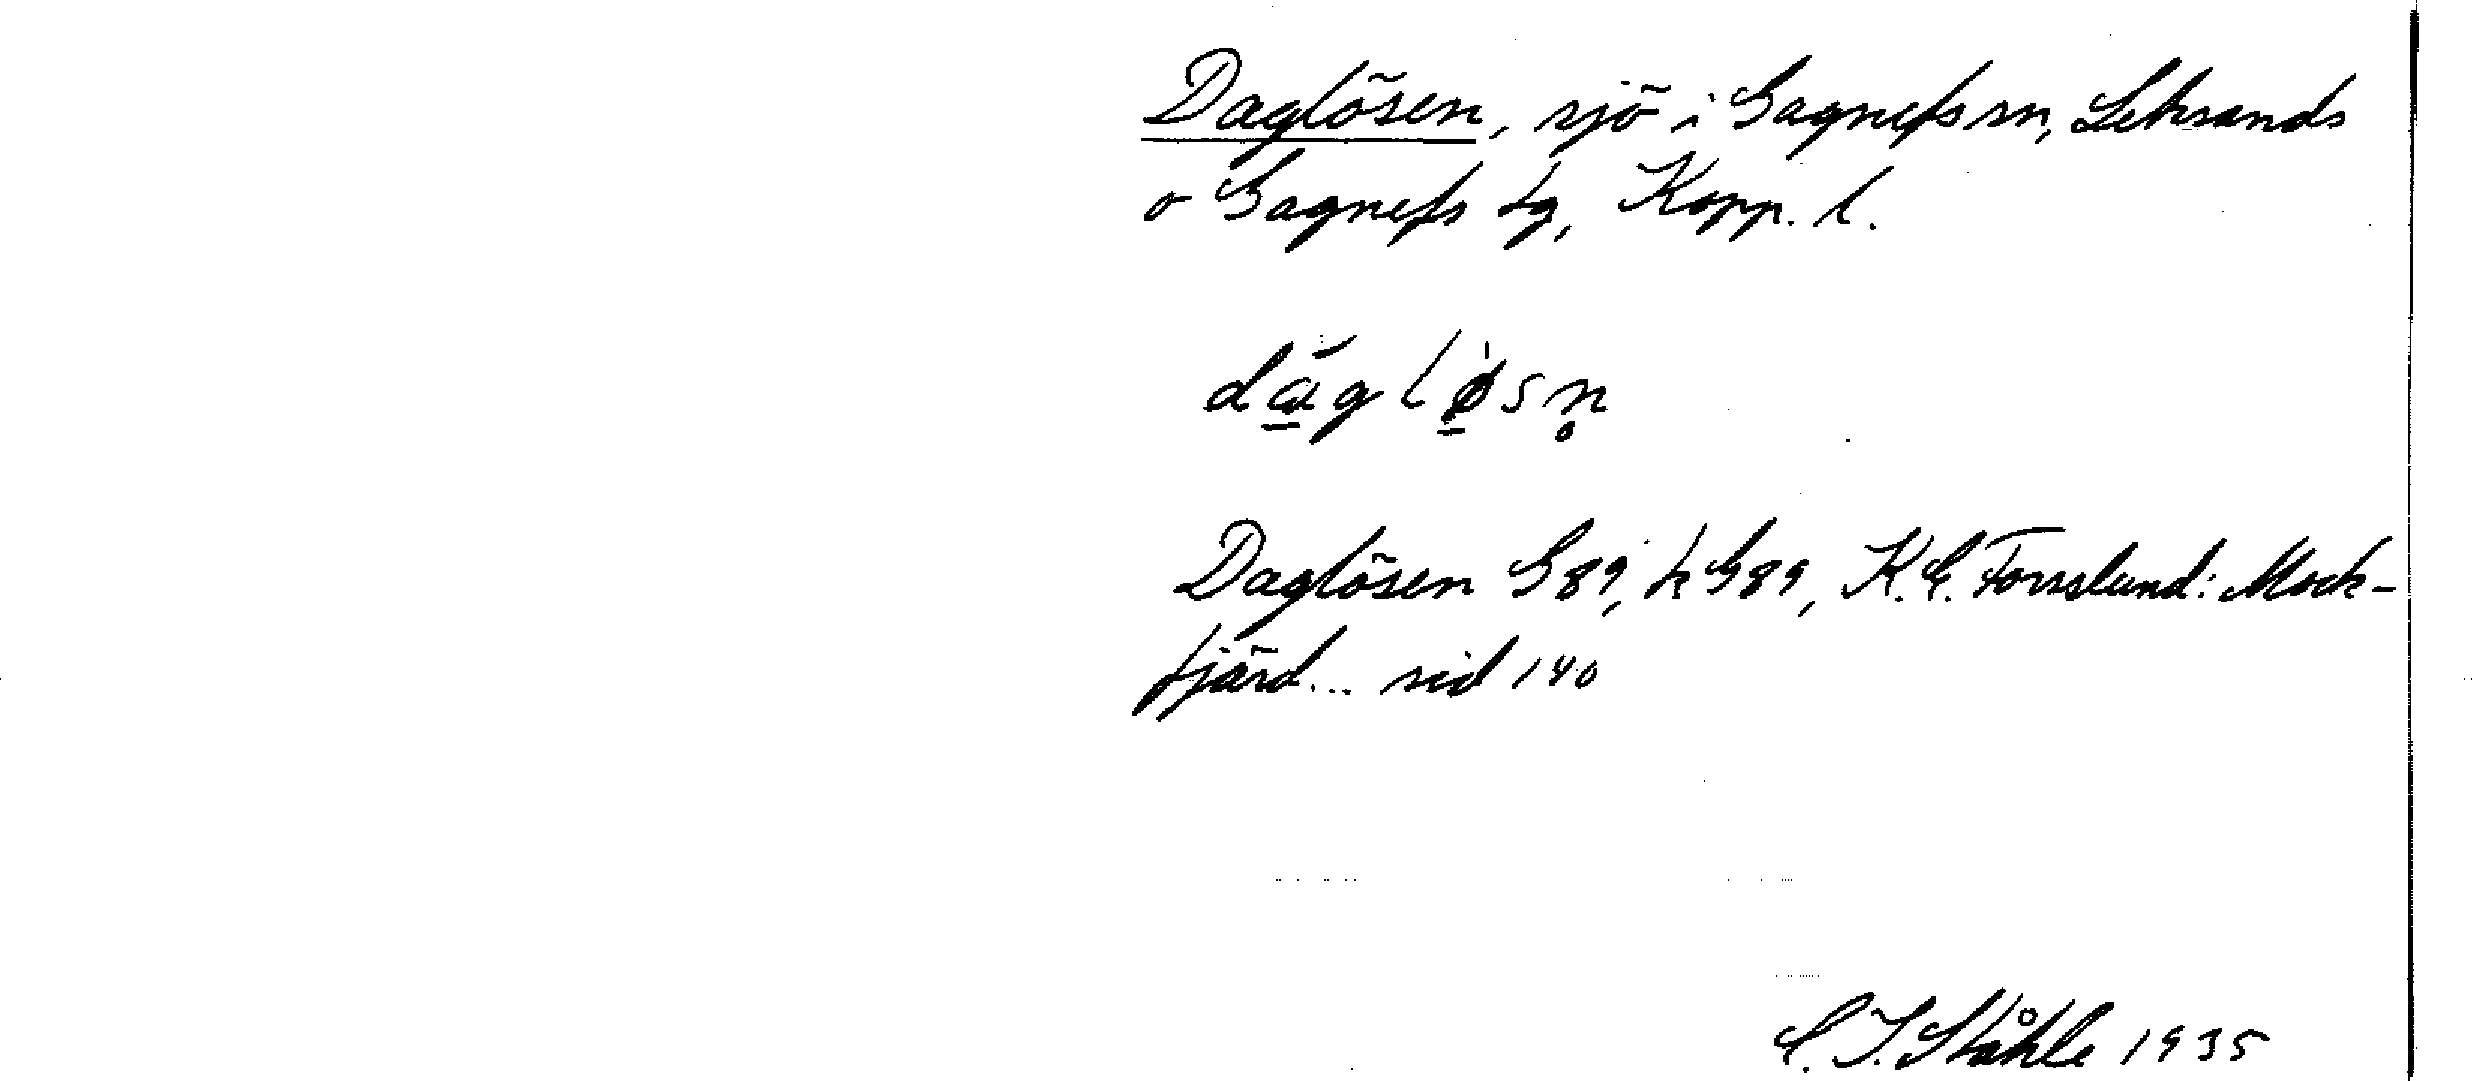 Daglösen, sjö i Gagnefs sn, Leksands
o Gagnefs tg, Kopp. l.
dag løsn̥
Daglösen G89, k G89, K.E. Forsslund: Mock-
fjärd... sid 140
C. I. Ståhle 1935